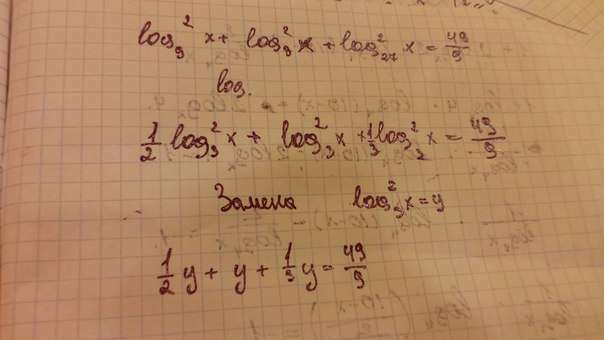 log₉² x + log₃² x + log₂₇² x = 49/9
log.
1/2 log₃² x + log₃² x + 1/3 log₃² x = 49/9
Замена log₃² x = y
1/2 y + y + 1/3 y = 49/9